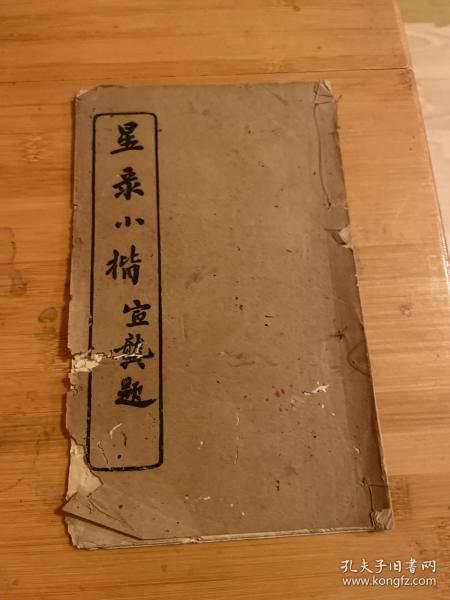 星录小楷宣龚题
孔夫子旧书网
www.kongfz.com